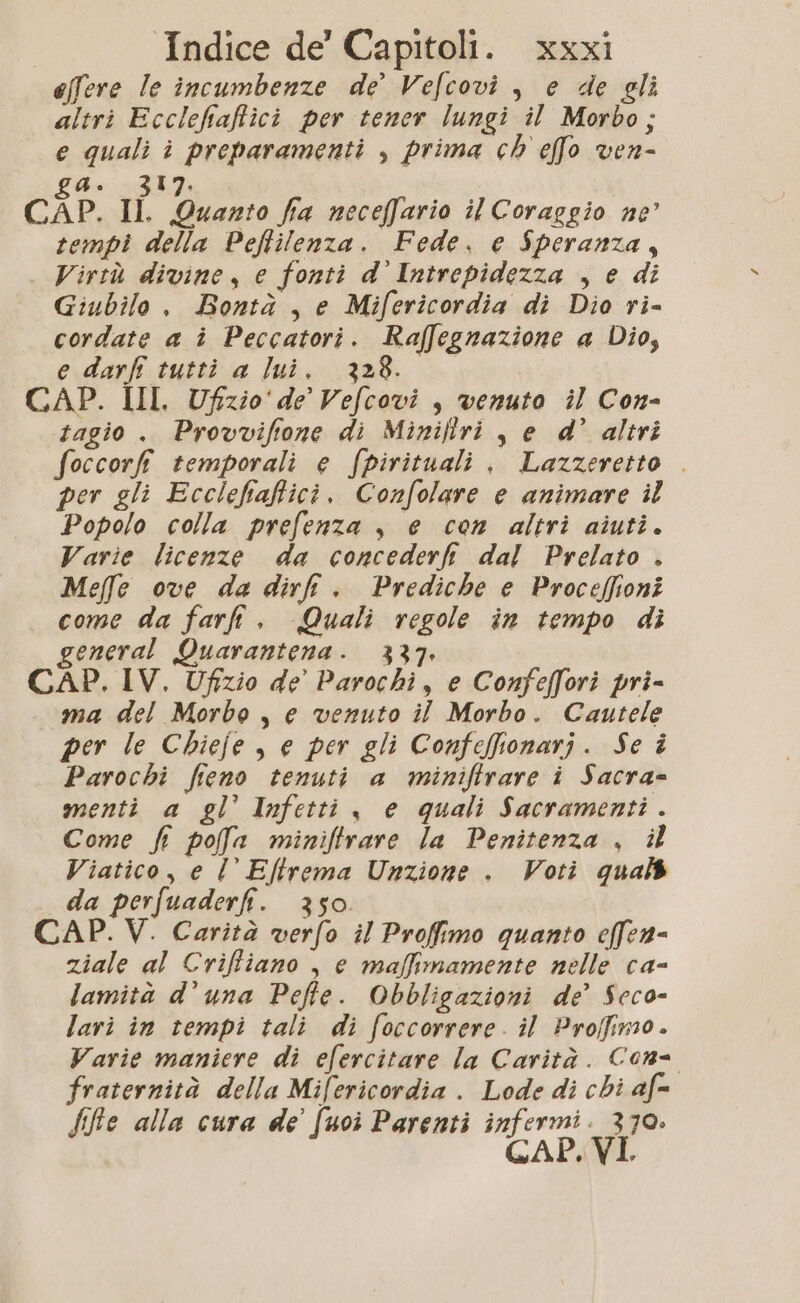 Indice de' Capitoli. xxxi
eſſere le incumbenze de' Veſcovi, e de gli
altri Eccleſiaſtici per tener lungi il Morbo;
e quali i preparamenti, prima ch'eſſo ven-
ga. 317.
CAP. II. Quanto ſia neceſſario il Coraggio ne'
tempi della Peſtilenza. Fede, e Speranza,
Virtù divine, e fonti d'Intrepidezza, e di
Giubilo. Bontà, e Miſericordia di Dio ri-
cordate a i Peccatori. Raſſegnazione a Dio,
e darſi tutti a lui. 328.
CAP. III. Ufizio de' Veſcovi, venuto il Con-
tagio. Provviſione di Miniſtri, e d' altri
ſoccorſi temporali e ſpirituali. Lazzeretto
per gli Eccleſiaſtici. Conſolare e animare il
Popolo colla preſenza, e con altri aiuti.
Varie licenze da concederſi dal Prelato.
Meſſe ove da dirſi. Prediche e Proceſſioni
come da farſi. Quali regole in tempo di
general Quarantena. 337.
CAP. IV. Ufizio de' Parochi, e Confeſſori pri-
ma del Morbo, e venuto il Morbo. Cautele
per le Chieſe, e per gli Confeſſionarj. Se i
Parochi ſieno tenuti a miniſtrare i Sacra-
menti a gl' Infetti, e quali Sacramenti.
Come ſi poſſa miniſtrare la Penitenza, il
Viatico, e l'Eſtrema Unzione. Voti quali
da perſuaderſi. 350.
CAP. V. Carità verſo il Proſſimo quanto eſſen-
ziale al Criſtiano, e maſſimamente nelle ca-
lamità d'una Peſte. Obbligazioni de' Seco-
lari in tempi tali di ſoccorrere il Proſſimo.
Varie maniere di eſercitare la Carità. Con-
fraternità della Miſericordia. Lode di chi aſ-
ſiſte alla cura de' ſuoi Parenti infermi. 370.
CAP. VI.